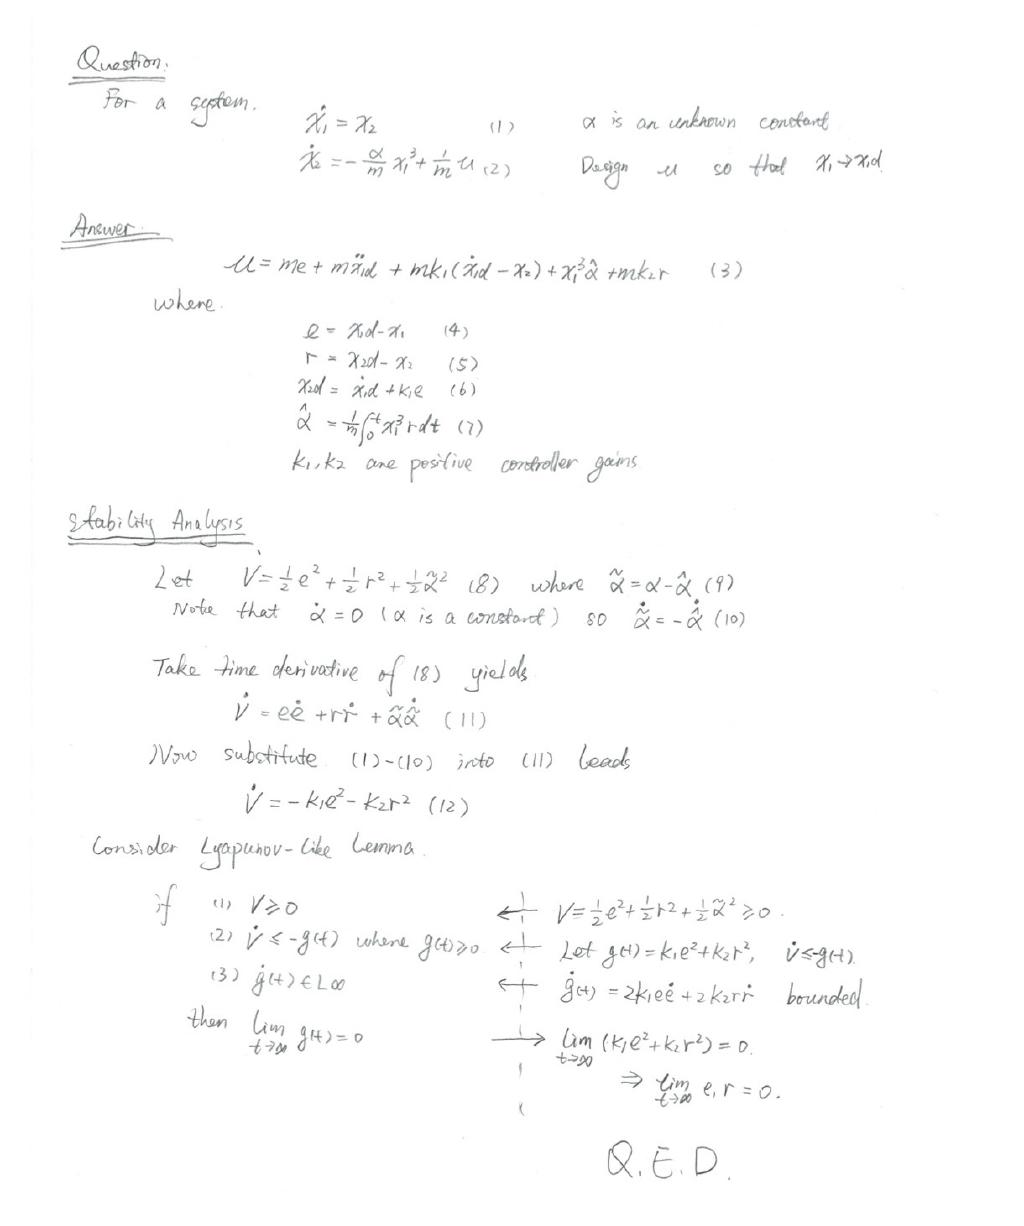 Question:
For a system.
ẋ₁ = x₂ (1) α is an unknown constant
ẋ₂ = -α/m x₁³ + 1/m u (2) Design u so that x₁ → x₁d
Answer.
u = me + mẍ₁d + mk₁(ẋ₁d - x₂) + x₁³α̂ + mk₂r (3)
where.
e = x₁d - x₁ (4)
r = x₂d - x₂ (5)
x₂d = ẋ₁d + k₁e (6)
α̂ = 1/m ∫₀ᵗ x₁³ r dt (7)
k₁, k₂ are positive controller gains
Stability Analysis
Let V = 1/2 e² + 1/2 r² + 1/2 α̃² (8) where α̃ = α - α̂ (9)
Note that α̇ = 0 (α is a constant) so α̃̇ = -α̂̇ (10)
Take time derivative of (8) yields
V̇ = eė + rṙ + α̃α̃̇ (11)
Now substitute (1)~(10) into (11) leads
V̇ = -k₁e² - k₂r² (12)
Consider Lyapunov-like Lemma.
if (1) V ≥ 0 ← V = 1/2 e² + 1/2 r² + 1/2 α̃² ≥ 0.
(2) V̇ ≤ -g(t) where g(t) ≥ 0 ← Let g(t) = k₁e² + k₂r², V̇ ≤ -g(t).
(3) ġ(t) ∈ L∞ ← ġ(t) = 2k₁eė + 2k₂rṙ bounded.
then lim t→∞ g(t) = 0 → lim t→∞ (k₁e² + k₂r²) = 0.
⇒ lim t→∞ e, r = 0.
Q.E.D.